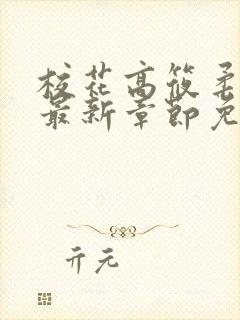 校花高筱柔
最新章节免
亓元